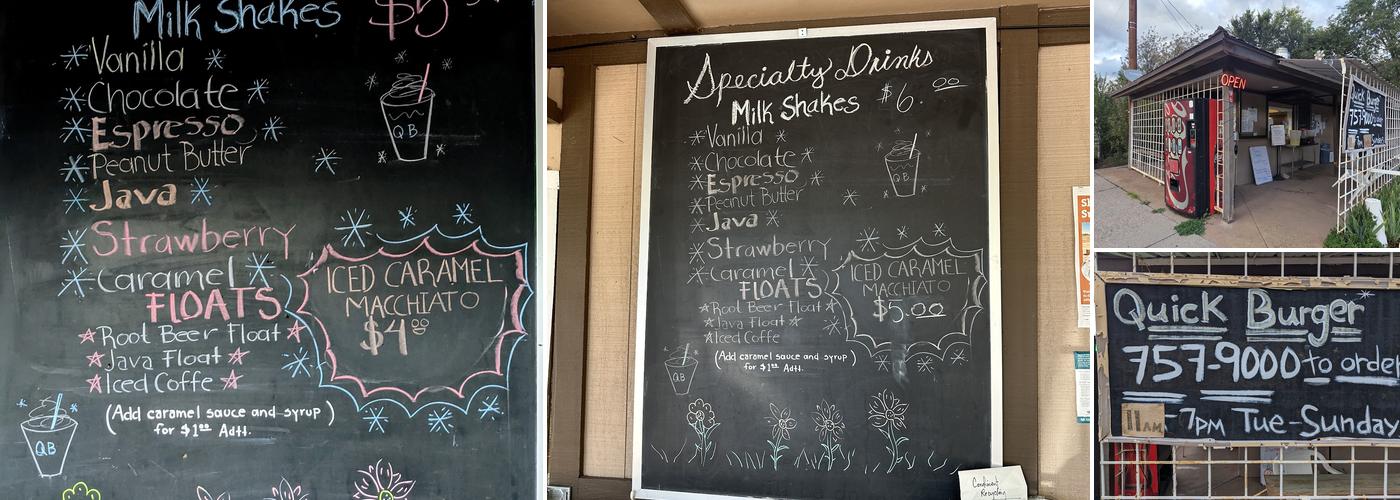 Milk Shakes $5
Vanilla
Chocolate
Espresso
Peanut Butter
Java
Strawberry
Caramel
FLOATS
Root Beer Float
Java Float
Iced Coffe
(Add caramel sauce and syrup)
for $1.00 Adtl.
ICED CARAMEL
MACCHIATO
$4.00
QB
QB
Specialty Drinks
Milk Shakes $6.00
Vanilla
Chocolate
Espresso
Peanut Butter
Java
Strawberry
Caramel
FLOATS
Root Beer Float
Java Float
Iced Coffe
(Add caramel sauce and syrup)
for $1.00 Adtl.
ICED CARAMEL
MACCHIATO
$5.00
QB
QB
Condiment
Recycling
OPEN
Quick Burger
757-9000
Quick Burger
757-9000 to order
11AM - 7PM Tue-Sunday